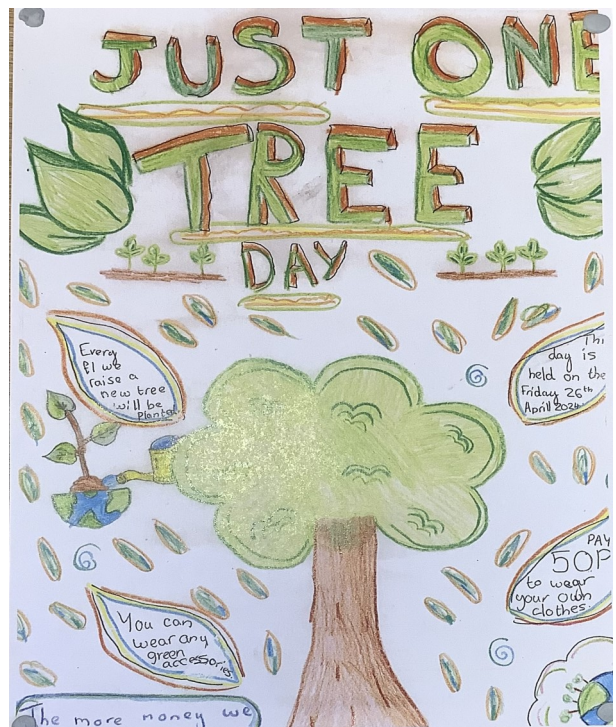 JUST ONE
TREE
DAY
Every
£1 we
raise a
new tree
will be
Planted
Thi
day is
held on the
Friday 26th
April 2024
PAY
50P
to wear
your own
clothes.
You can
wear any
green
accessories
The more money we